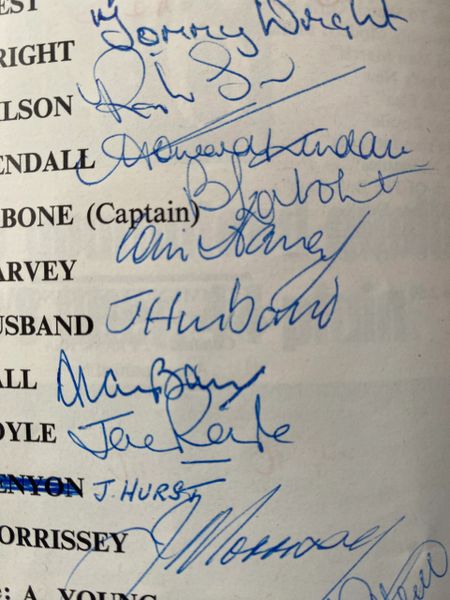 EST
RIGHT Tommy Wright
ILSON
ENDALL Howard Kendall
ABONE (Captain) B Labone
ARVEY Colin Harvey
USBAND J Husband
ALL Alan Ball
OYLE Joe Royle
ENYON J. HURST
ORRISSEY J Morrissey
e: A. YOUNG